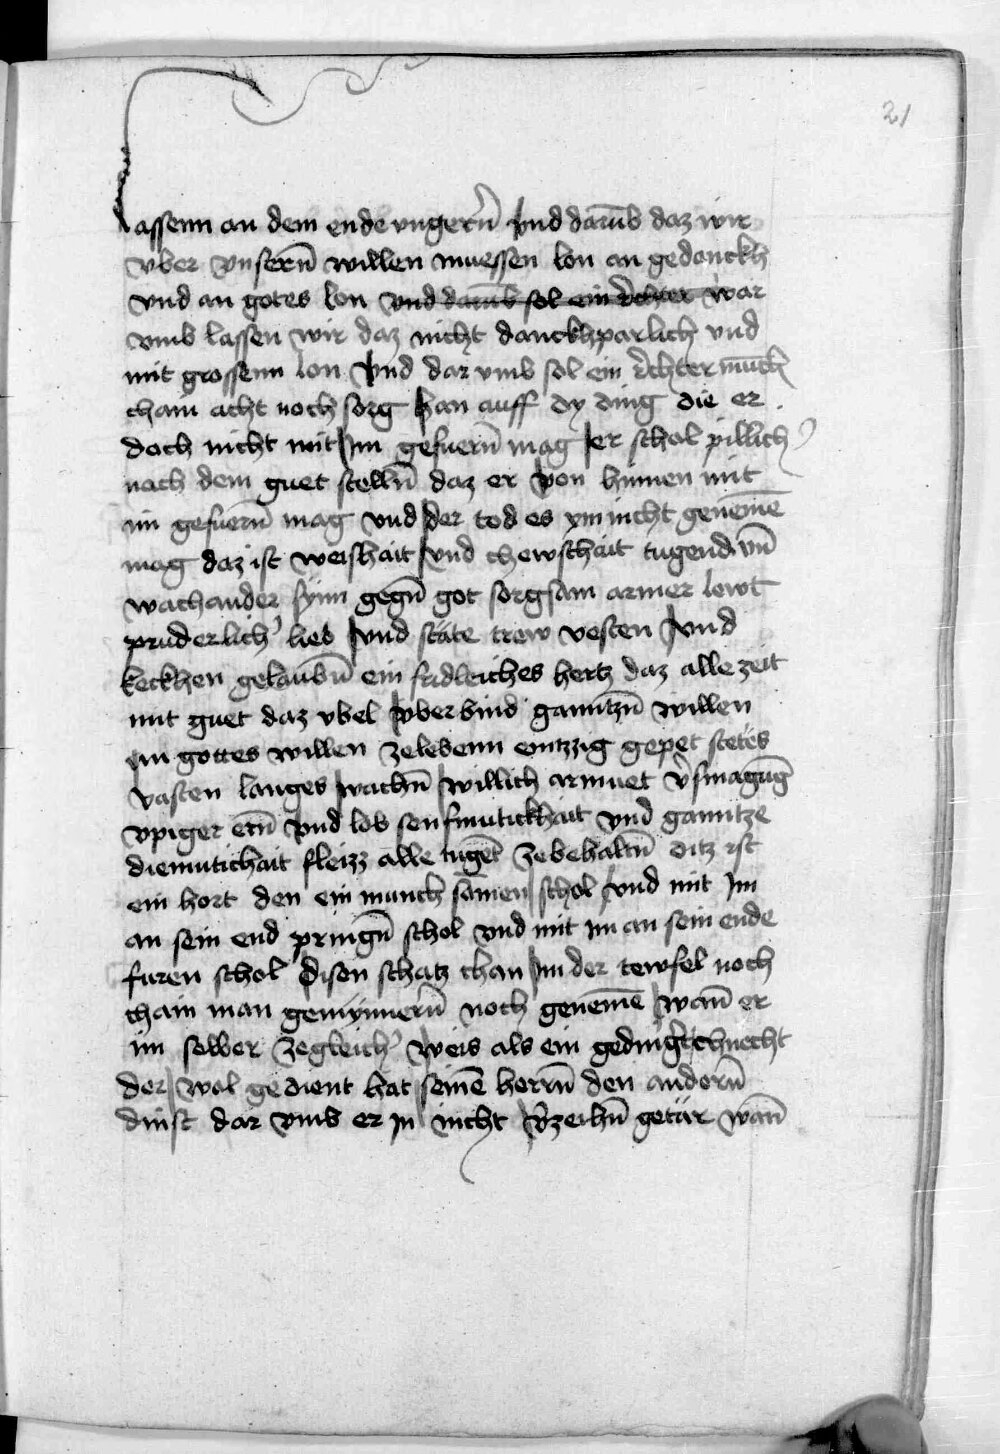 21
Lassenn an dem ende vngerñ vnd darūb daz wir
vber vnserñ willen muessen lon an gedanckh
vnd an gotes lon vnd darūb sol ein rechter war
vmb lassen wir daz nicht danckhparlich vnd
mit grossenn lon vnd dar vmb sol ein rechter mūch
chain acht noch sorg han auff dy ding die er
doch nicht mit im gefuerñ mag er schol pillich
nach dem guet stelln̄ daz er von hinnen mit
im gefuerñ mag vnd der tod es ym nicht genemē
mag daz ist weishait vnd chewschait tugend vn̄
wachander synn gegn̄ got sorgsam armer lewt
pruderlich lieb vnd stäte trew vesten vnd
keckhen gelaubn̄ ein fridleiches hertz daz alle zeit
mit guet daz vbel vberbind ganntzn̄ willen
in gottes willen zelebenn emtzzig gepet stetes
vasten langes wachn̄ willich armuet v̄smagūg
vpiger ern̄ vnd lob senfmutickhait vnd ganntze
diemutichait fleizz alle tugēt zebehaltn̄ ditz ist
ein hort den ein munch samen schol vnd mit im
an sein end pringn̄ schol vnd mit im an sein ende
furen schol disen schatz chan im der tewfel noch
chain man gemynnerñ noch genemē wan̄ er
im selber zegleich weis als ein gedingter chnecht
der wol gedient hat seinē herrn̄ den anderñ
dinst dar vmb er in nicht v̄zeihn̄ getür wan̄